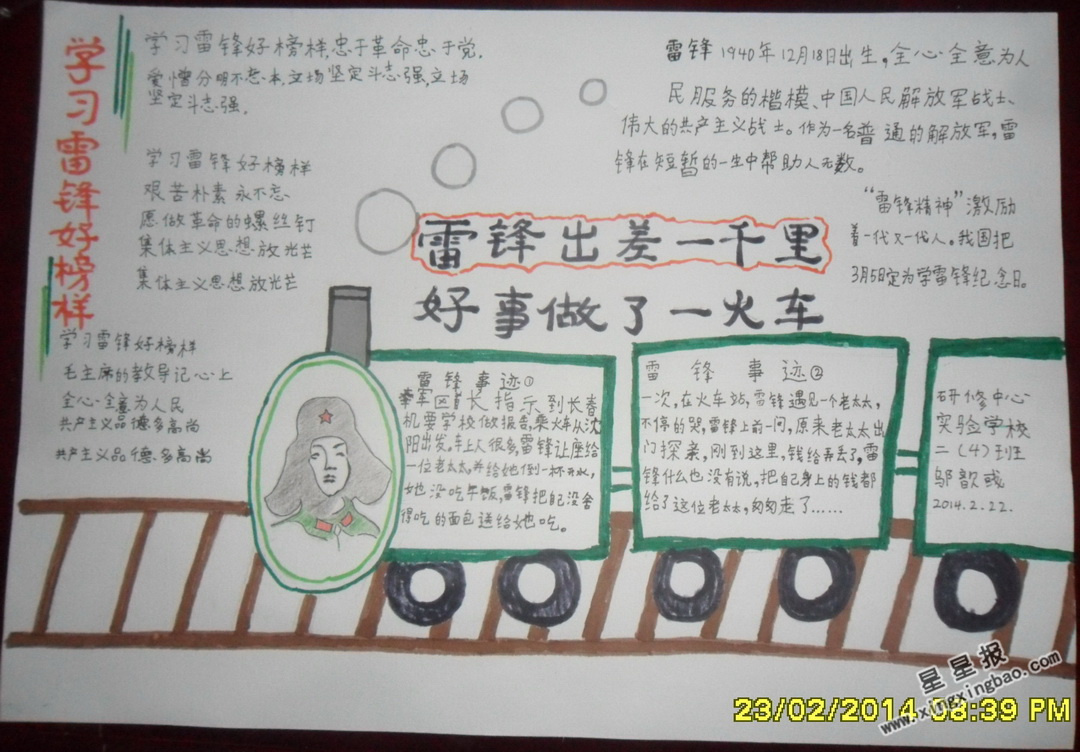 学习雷锋好榜样
学习雷锋好榜样,忠于革命忠于党.
爱憎分明不忘本,立场坚定斗志强,立场
坚定斗志强.
学习雷锋好榜样
艰苦朴素永不忘
愿做革命的螺丝钉
集体主义思想放光芒
集体主义思想放光芒
学习雷锋好榜样
毛主席的教导记心上
全心全意为人民
共产主义品德多高尚
共产主义品德多高尚
雷锋1940年12月18日出生,全心全意为人
民服务的楷模、中国人民解放军战士、
伟大的共产主义战士。作为一名普通的解放军,雷
锋在短暂的一生中帮助人无数。
“雷锋精神”激励
着一代又一代人。我国把
3月5日定为学雷锋纪念日。
雷锋出差一千里
好事做了一火车
雷锋事迹①
军区首长指示到长春
机要学校做报告,乘火车从沈
阳出发,车上人很多,雷锋让座给
一位老太太,并给她倒一杯开水,
她没吃午饭,雷锋把自己没舍
得吃的面包送给她吃。
雷锋事迹②
一次,在火车站,雷锋遇见一个老太太,
不停的哭,雷锋上前一问,原来老太太出
门探亲,刚到这里,钱给弄丢了,雷
锋什么也没有说,把自己身上的钱都
给了这位老太太,匆匆走了……
研修中心
实验学校
二(4)班
邬歆彧
2014.2.22.
星星报
www.xingxingbao.com
23/02/2014 08:39 PM